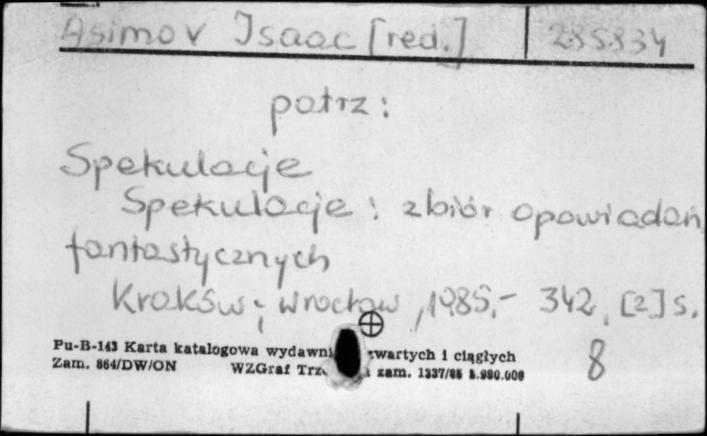 Asimov Isaac [red.] 285834
patrz:
Spekulacje
Spekulacje : zbiór opowiadań
fantastycznych
Kraków ; Wrocław, 1985.- 342, [2] s.
Pu-B-143 Karta katalogowa wydawni zwartych i ciągłych
Zam. 864/DW/ON WZGraf Trz zam. 1337/85 8